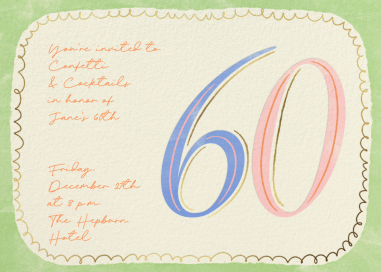 You're invited to
Confetti
& Cocktails
in honor of
Jane's 60th
60
Friday
December 29th
at 8 p.m.
The Hepburn
Hotel